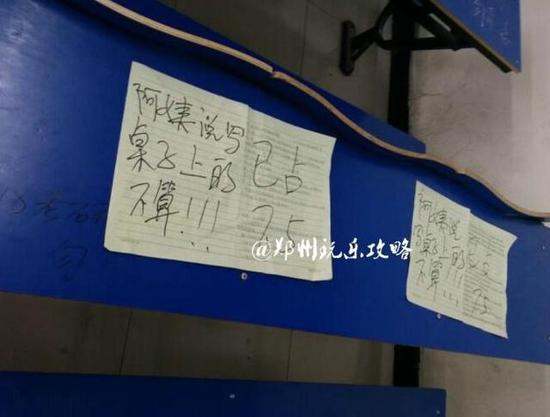 阿姨说写
桌子上的
不算!!!
已占
75
@郑州玩乐攻略
阿姨说
写桌子上的
不算!!!
已占
75